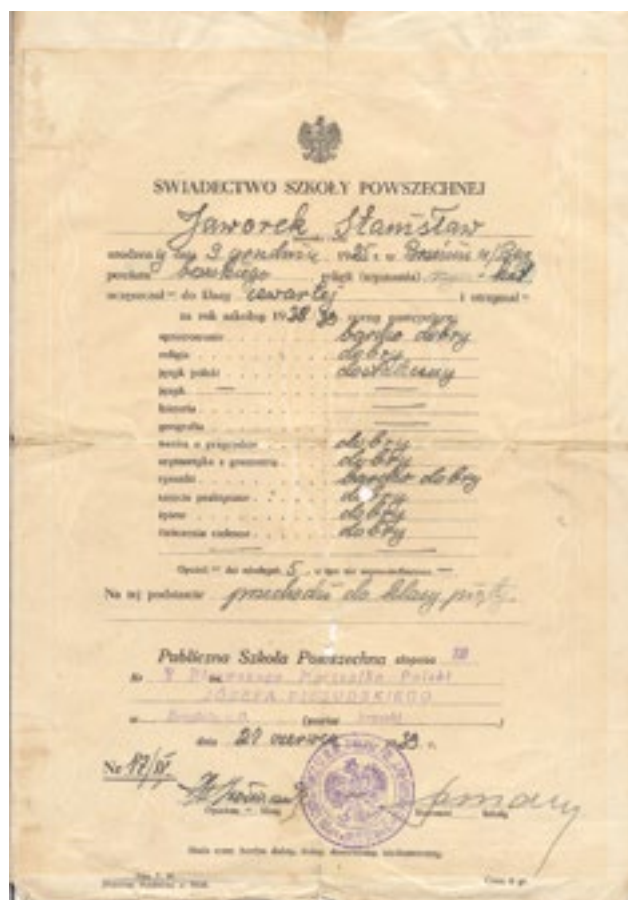 ŚWIADECTWO SZKOŁY POWSZECHNEJ
Jaworek Stanisław
urodzony dnia 3 grudnia 1925 r. w
powiatu religii (wyznania)
uczęszczał — do klasy czwartej i otrzymał —
za rok szkolny 1938/39 oceny następujące:
sprawowanie bardzo dobry
religia dobry
język polski dostateczny
język —
historia —
geografia —
nauka o przyrodzie dobry
arytmetyka z geometrią dobry
rysunki bardzo dobry
zajęcia praktyczne dobry
śpiew dobry
ćwiczenia cielesne dobry
Opuścił — dni szkolnych 5, w tym nie usprawiedliwiono —
Na tej podstawie przechodzi do klasy piątej.
Publiczna Szkoła Powszechna stopnia III
Nr im. Pierwszego Marszałka Polski
JÓZEFA PIŁSUDSKIEGO
w (powiat )
dnia 21 czerwca 1939 r.
Nr 17/IV.
Opiekun — klasy Kierownik Szkoły
Skala ocen: bardzo dobry, dobry, dostateczny, niedostateczny.
Cena 6 gr.